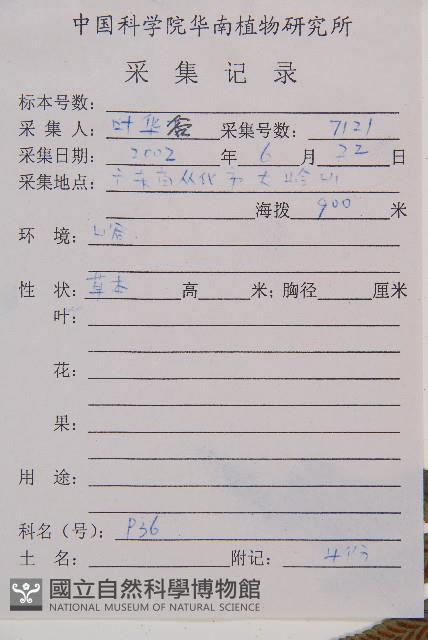 中国科学院华南植物研究所
采集记录
标本号数：
采集人：叶华谷 采集号数：7121
采集日期：2002 年 6 月 22 日
采集地点：广东省从化市大岭山
海拨 900 米
环境：山谷.
性状：草本 高 米；胸径 厘米
叶：
花：
果：
用途：
科名（号）：P36
土名： 附记：
國立自然科學博物館
NATIONAL MUSEUM OF NATURAL SCIENCE